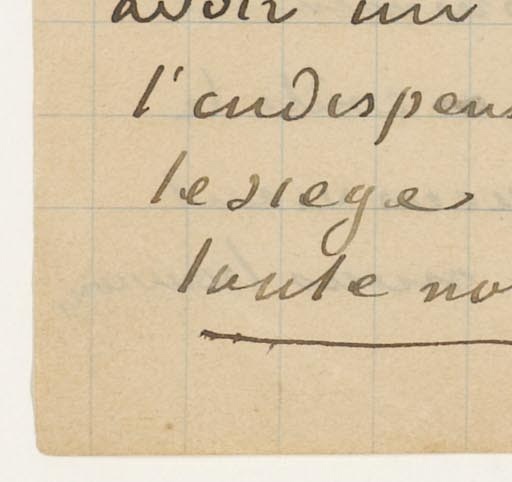 avoir un
l'indispens
le siege
toute no